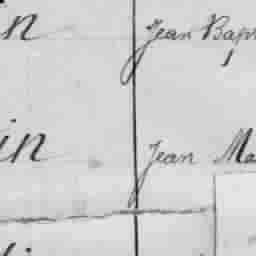 in Jean Bap
in Jean Ma